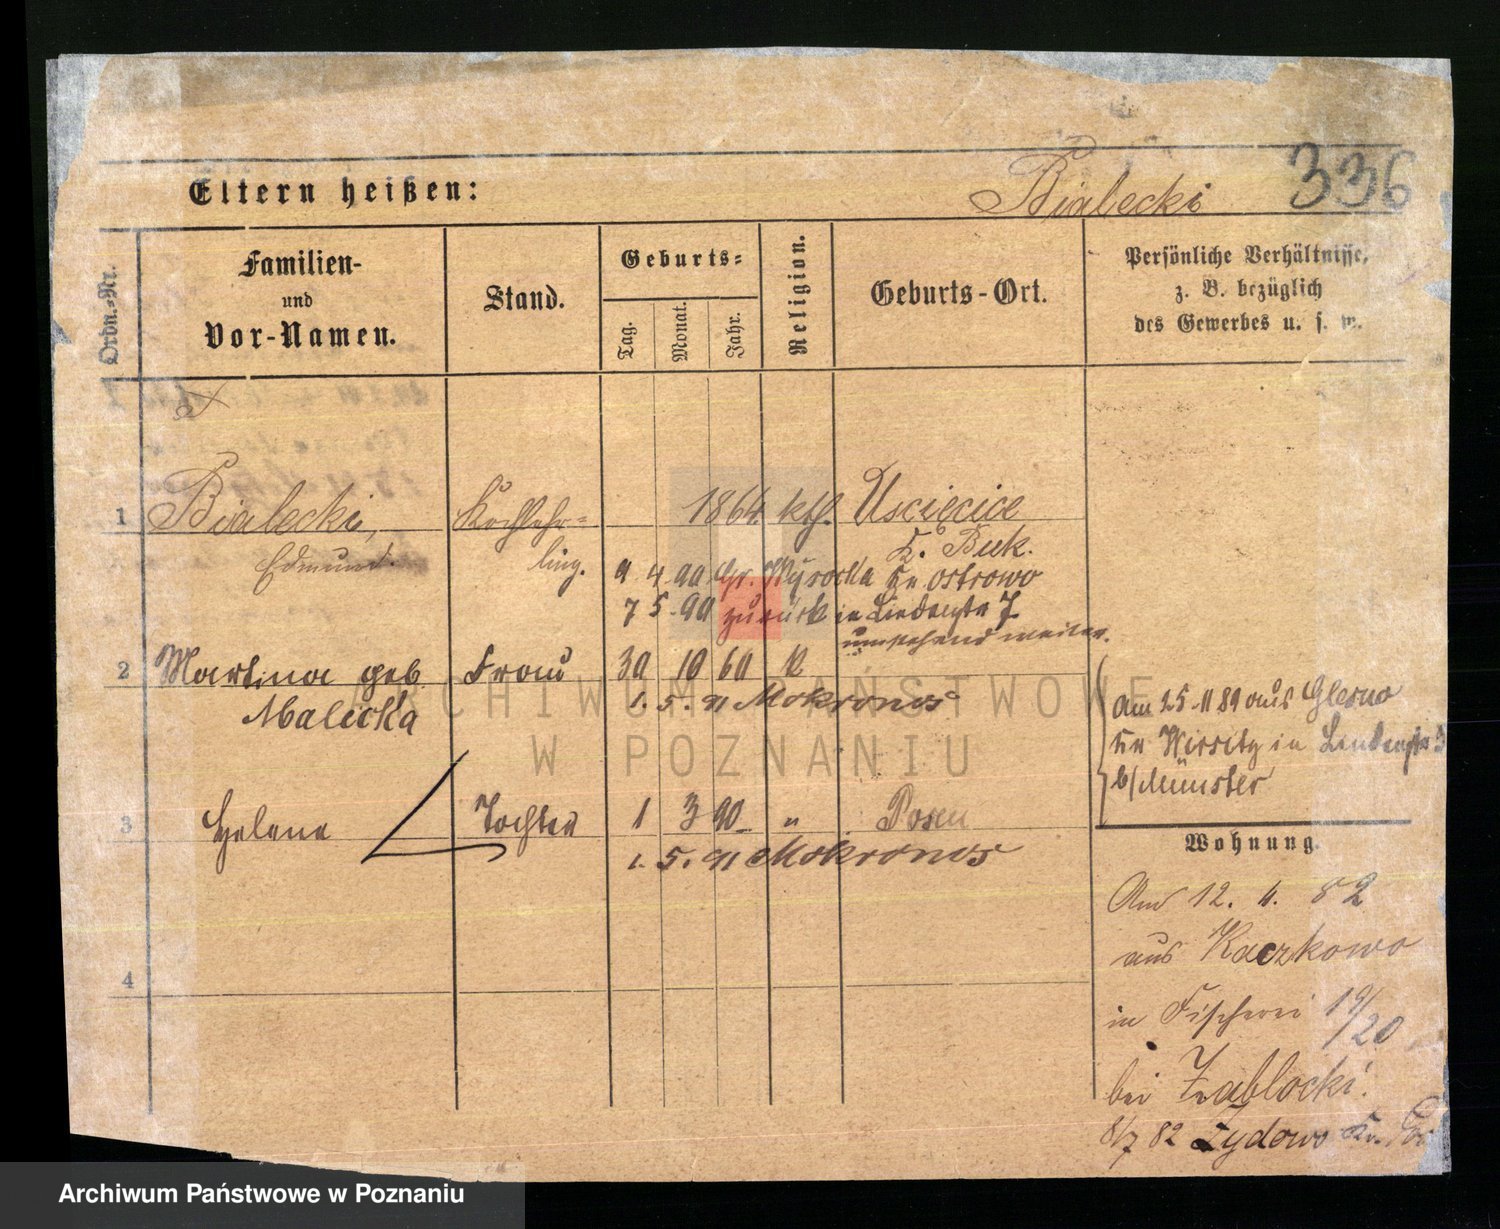 336
Eltern heißen:
Bialecki
Ordn.-Nr.
Familien-
und
Vor-Namen.
Stand.
Geburts-
Tag.
Monat.
Jahr.
Religion.
Geburts-Ort.
Persönliche Verhältnisse,
z. B. bezüglich
des Gewerbes u. s. w.
1 Bialecki, Kochlehr= 1864 kth. Usciecice
Edmund. ling. K. Buk.
9 4 90 Gr. Wysocka Kr Ostrowo
7 5. 90 zurück in Lindenstr 7
umstehend weiter.
2 Martina geb Frau 30 10 60 K
Malicka 1. 5. 91 Mokronos
am 25 11 89 aus Glesno
Kr Wirsitz in Lindenstr 3
b/Münster
3 Helene Tochter 1 3 90 " Posen
1. 5. 91 Mokronos
Wohnung.
Am 12. 4. 82
aus Kaczkowo
in Fischerei 19/20
bei Zablocki.
8/7 82 Zydowo Kr.
4
ARCHIWUM PAŃSTWOWE
W POZNANIU
Archiwum Państwowe w Poznaniu